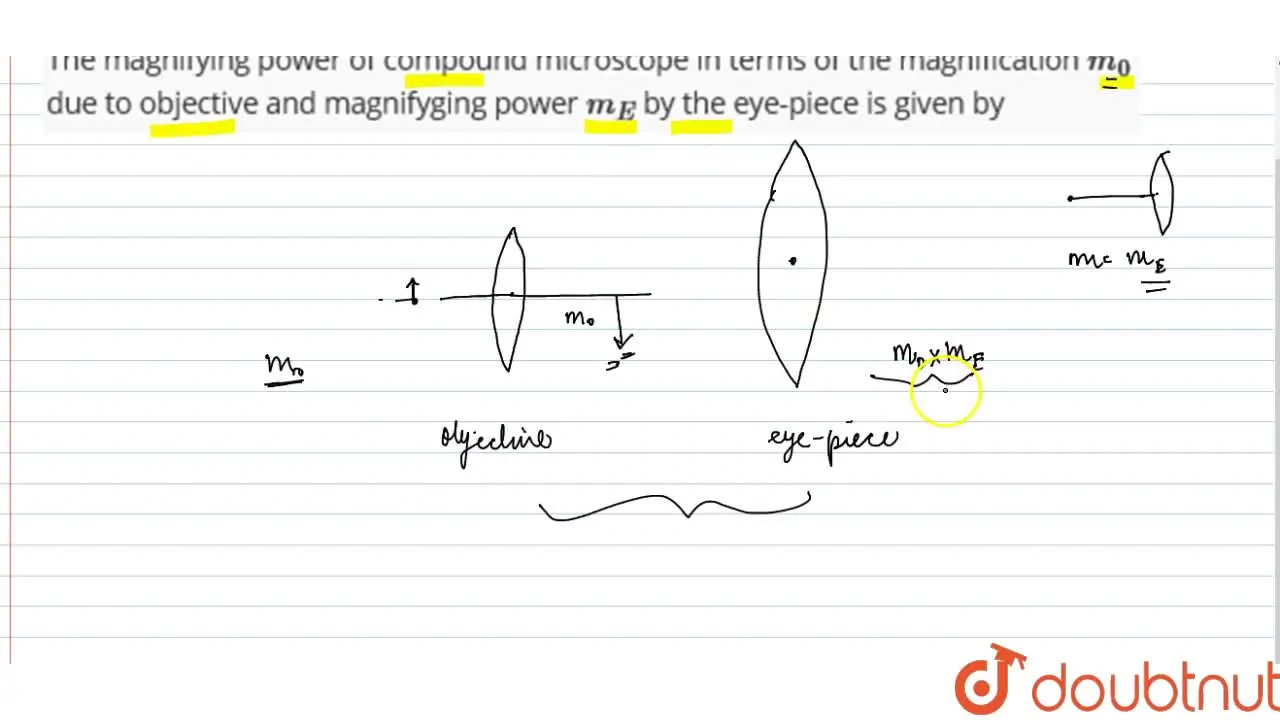 The magnifying power of compound microscope in terms of the magnification m₀
due to objective and magnifyging power m_E by the eye-piece is given by
m = m_E
m₀
m₀ × m_E
m₀
objective
eye-piece
doubtnut